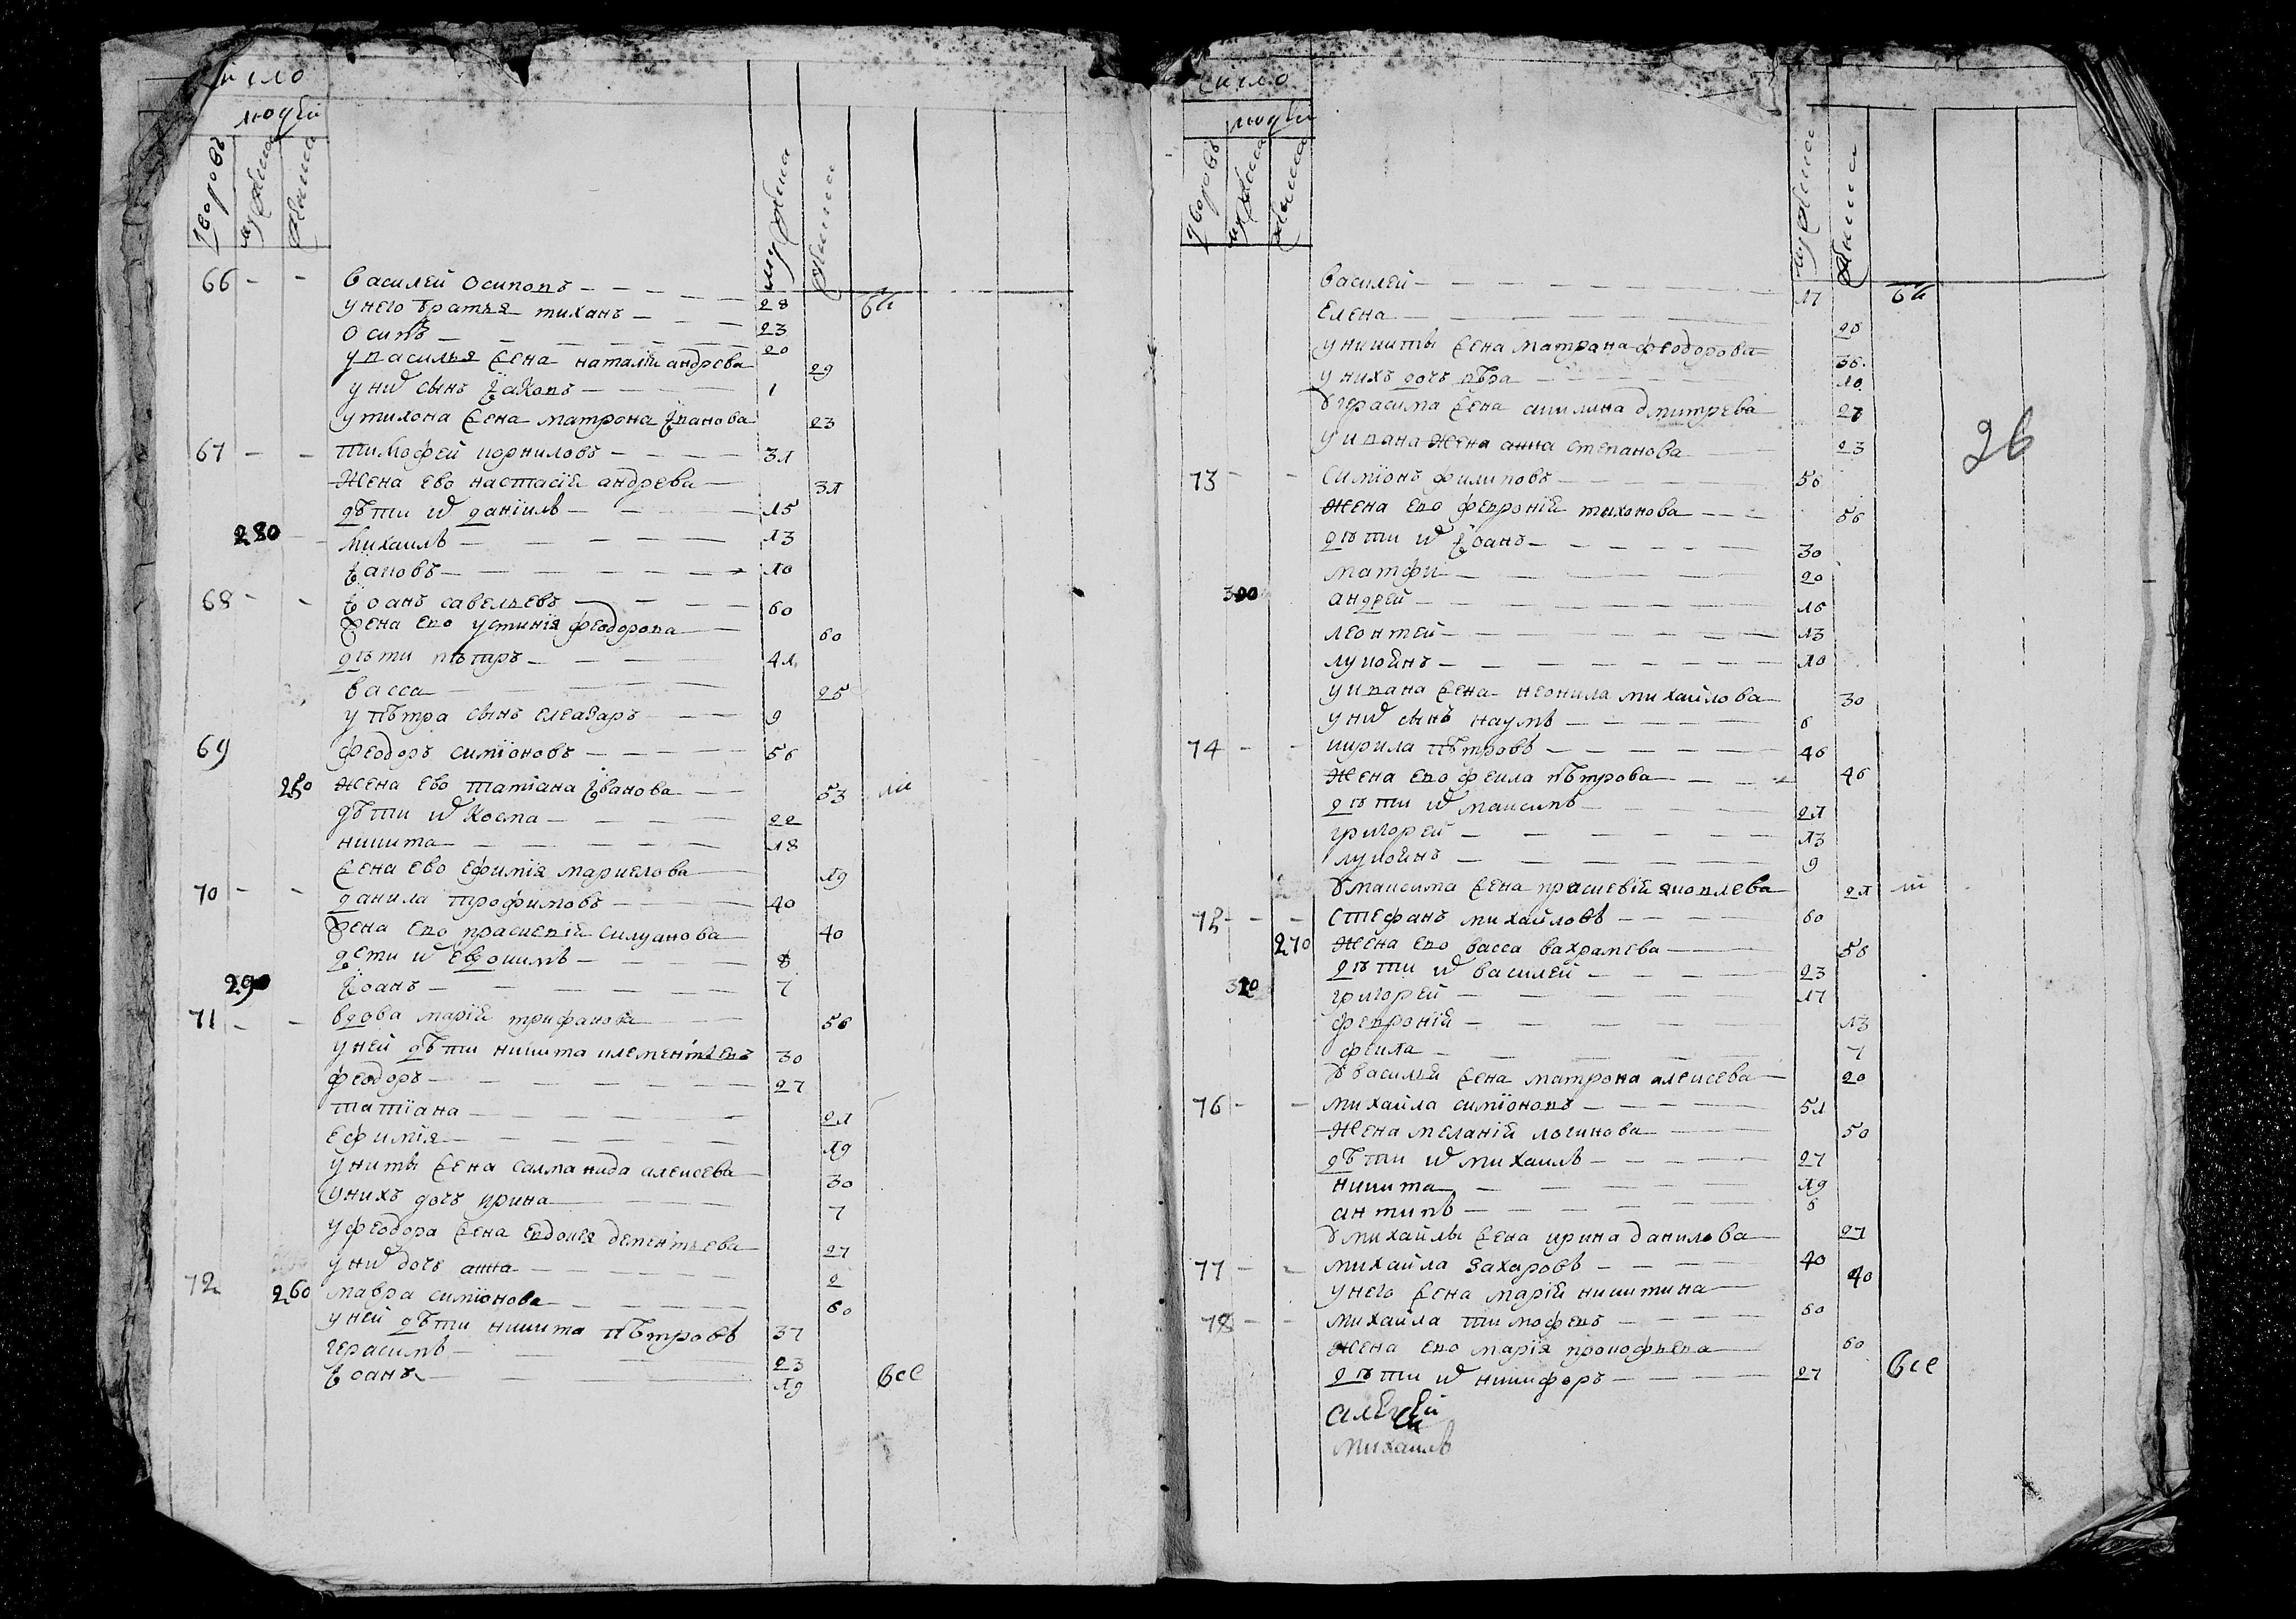 число
людей
дворовъ мужеска женска
мужеска женска
66 - - василей осиповъ - 28 бы
у него братья тиханъ - 23
осипъ - 20
у василья жена наталїи андрева 29
у них сынъ іаковъ - 1
у тихона жена матрона іванова 23
67 - - тимофей корниловъ - 31
жена ево настасїи андрева - 31
дѣти их данїилъ - 15
280 михаилъ - 13
іаковъ - 10
68 - - іоанъ савельевъ - 60
жена ево устинїя феодорова 60
дѣти пѣтръ - 41
васса - 25
у пѣтра сынъ елеазаръ - 9
69 феодоръ симїоновъ - 56
250 жена ево татїана іванова - 53
дѣти их косма - 22
никита - 18
жена ево ефимїя маркелова 19
70 - - данила трофимовъ - 40
жена ево прасковїи силуанова 40
дети их евдокимъ - 8
290 іоанъ - 7
71 - - вдова марїи трифанова 56
у ней дѣти никита клементьевъ 30
феодоръ - 27
татїана - 21
ефимїя - 19
у никиты жена саламанида алексева 30
у нихъ дочь ирина 7
у феодора жена евдокея дементьева 27
у них дочь анна - 2
72 260 мавра симїонова - 60
у ней дѣти никита пѣтровъ 37
герасимъ - 23
іоанъ - 19 все
число
людей
дворовъ мужеска женска
мужеска женска
василей - 17 бы
елена - 20
у никиты жена матрана феодорова 36
у нихъ дочь вѣра - 10
у герасима жена акилина дмитрева 27
26
у ивана жена анна степанова 23
73 - - симїонъ филиповъ - 56
жена ево февронїи тихонова - 56
дѣти их іоанъ - 30
матфи - 20
300 андрей - 16
леонтей - 13
лукойнъ - 10
у ивана жена неонила михайлова 30
у них сынъ наумъ - 6
74 - - кирила пѣтровъ - 46
жена ево фекла пѣтрова - 46
дѣти их максимъ - 21
григорей - 13
лукойнъ - 9
у максима жена праскевїи яковлева 21
75 - - стефанъ михайловъ - 60
270 жена ево васса вахрамева 56
дѣти их василей - 23
310 григорей - 17
феврония - 13
фекла - 7
у василья жена матрона алексева 20
76 - - михайла симїоновъ - 51
жена меланїи логинова 50
дѣти их михаилъ - 27
никита - 19
антипъ - 6
у михайлы жена ирина данилова 27
77 - - михайла захаровъ - 40
у него жена марїи никитина 40
78 - - михайла тимофевъ - 60
жена ево марїя прокофьева 60
дѣти их никифоръ - 27 все
алексей
михаилъ